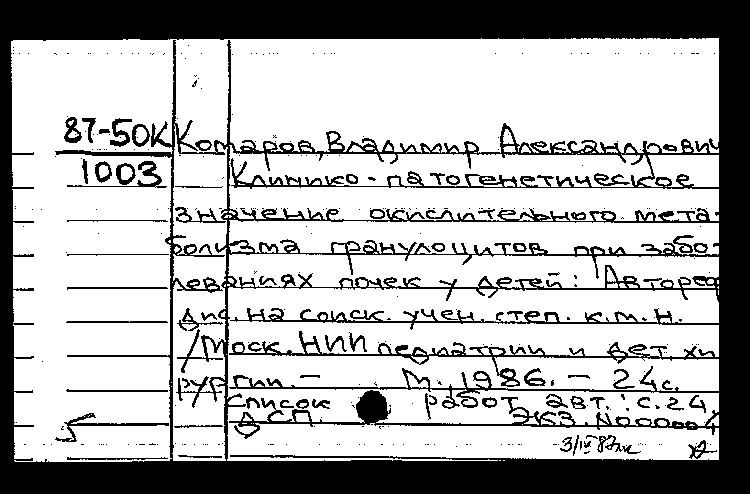 87-50К Комаров, Владимир Александрович
1003 Клинико-патогенетическое
значение окислительного мета-
болизма гранулоцитов при забо-
леваниях почек у детей: Автореф
дис. на соиск. учен. степ. к.м.н.
/Моск. НИИ педиатрии и дет. хи
рургии. - М., 1986. - 24с.
Список работ авт.: с.24
ДСП. Экз. N00004
3/IV 87